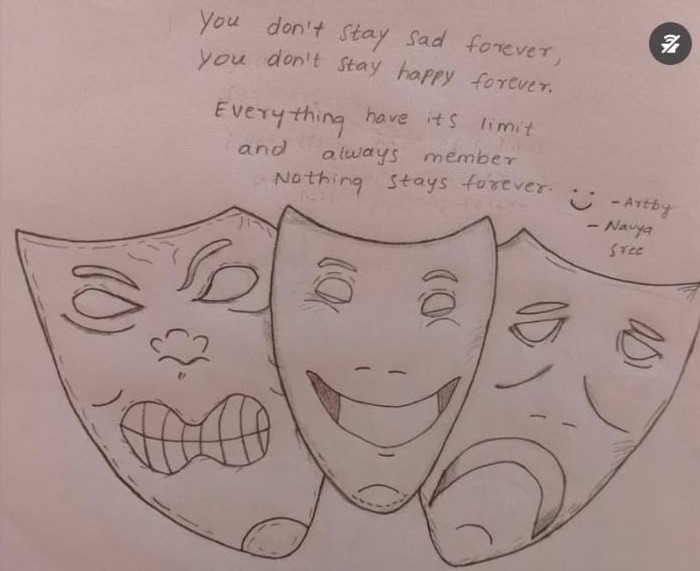 You don't stay sad forever,
you don't stay happy forever.
Everything have its limit
and always member
Nothing stays forever.
- Artby
- Navya
Sree